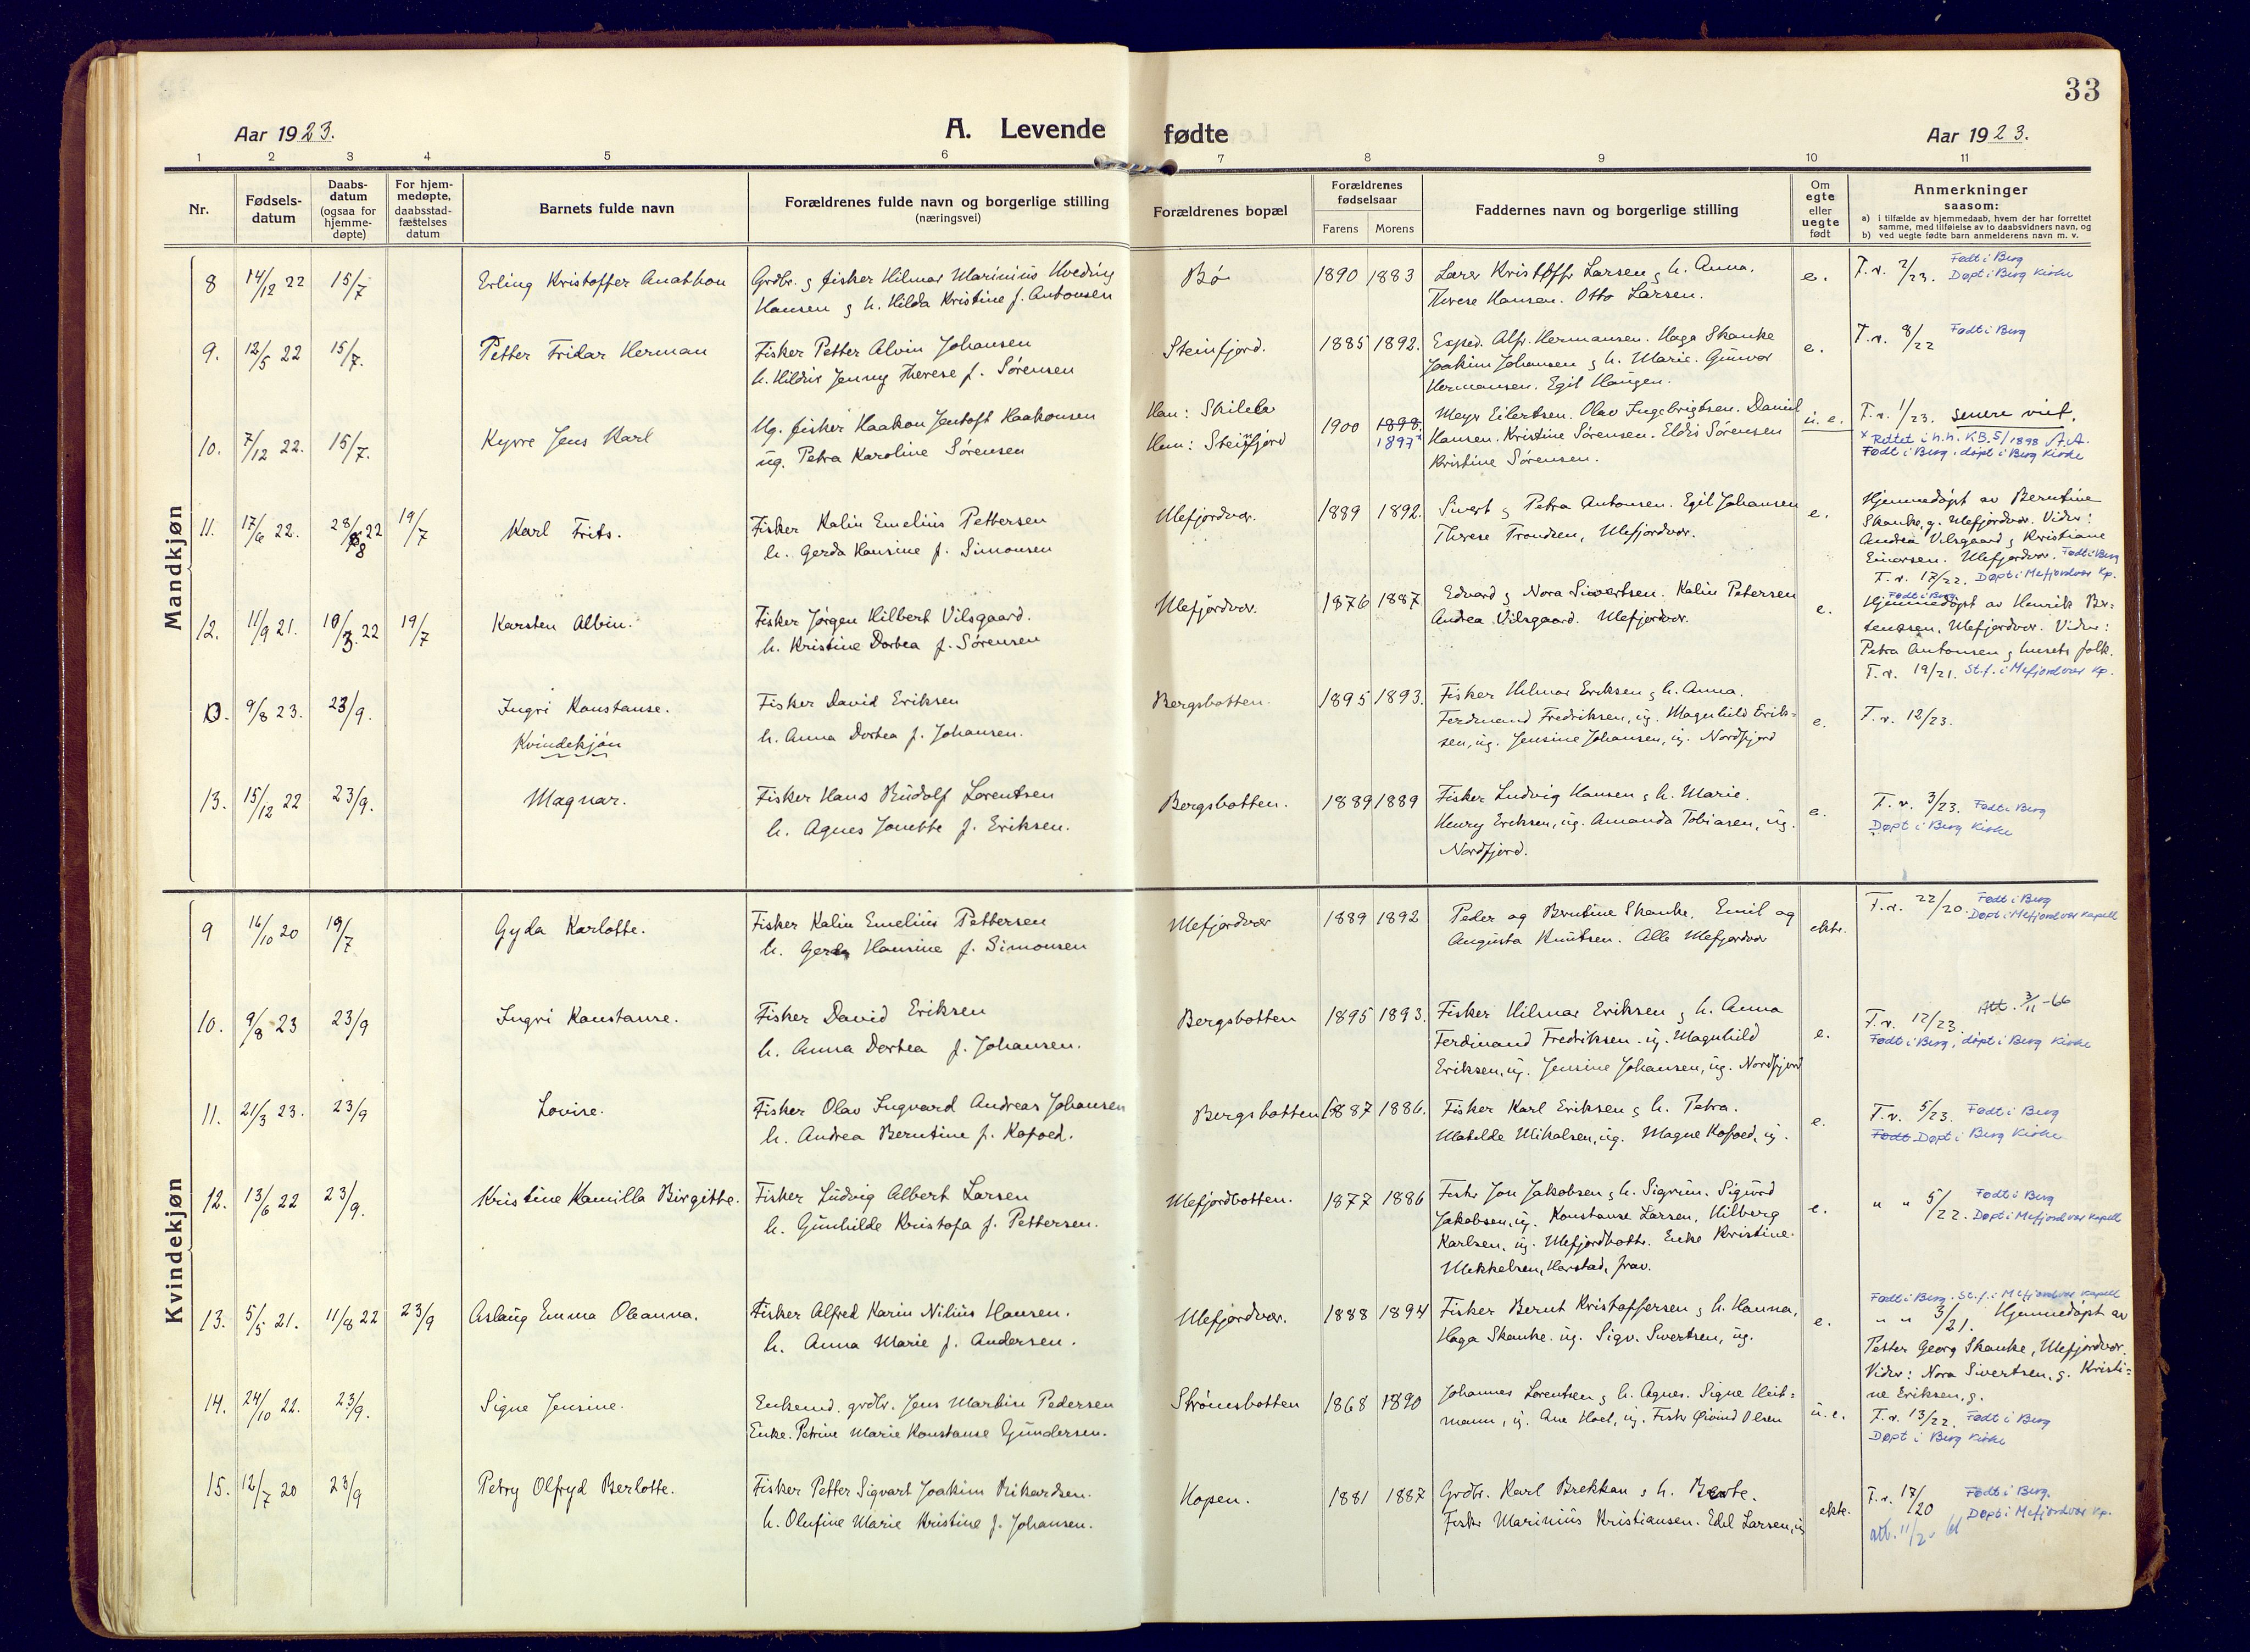 33
Aar 1923.
A. Levende fødte
Aar 1923.
1 2 3 4 5 6 7 8 9 10 11
Nr.
Fødsels-datum
Daabs-datum (ogsaa for hjemme-døpte)
For hjem-medøpte, daabsstad-fæstelses datum
Barnets fulde navn
Forældrenes fulde navn og borgerlige stilling (næringsvei)
Forældrenes bopæl
Forældrenes fødselsaar
Farens Morens
Faddernes navn og borgerlige stilling
Om egte eller uegte født
Anmerkninger saasom:
a) i tilfælde av hjemmedaab, hvem der har forrettet samme, med tilføielse av to daabsvidners navn, og
b) ved uegte fødte barn anmelderens navn m. v.
Mandkjøn
8 14/12 22 15/7 Erling Kristoffer Anathon
Grdbr. & fisker Hilmar Marinius Hveding
Hansen & h. Hilda Kristine f. Antonsen
Bø 1890 1883
Lærer Kristoffer Larsen & h. Anna.
Therese Hansen. Otto Larsen.
e. T.v. 2/23. Født i Berg
Døpt i Berg Kirke
9. 12/5 22 15/7. Petter Fridar Herman
Fisker Petter Alvin Johansen
h. Hildur Jenny Therese f. Sørensen
Steinfjord. 1885 1892.
Exped. Alfr. Hermansen. Haga Skanke
Joakim Johansen & h. Marie. Gunvor
Hermansen. Egil Haugen.
e. T.v. 8/22 Født i Berg
10. 7/12 22. 15/7. Kyrre Jens Karl
Ug. fisker Haakon Jentoft Haakonsen
ug. Petra Karoline Sørensen
Han:
Hun: Steinfjord
1900 1898. 1897x
Meyer Eilertsen. Olav Ingebrigtsen. Daniel
Hansen. Kristine Sørensen. Eldis Sørensen
Kristine Sørensen.
u. e. T.v. 1/23. senere viet.
x Rettet i h.h. K.B. 5/1898 A.A.
Født i Berg, døpt i Berg Kirke
11. 17/6 22. 28/8 22 19/7 Karl Frits.
Fisker Kalin Emelius Pettersen
h. Gerda Hansine f. Simonsen
Mefjordvær. 1889 1892.
Sivert & Petra Antonsen. Egil Johansen
Therese Trondsen, Mefjordvær.
e. Hjemmedøpt av Berntine
Skanke, g. Mefjordvær. Vidner:
Andrea Vilsgaard & Kristiane
Einarsen. Mefjordvær. Født i Berg
T.v. 17/22. Døpt i Mefjordvær Kp.
12. 11/9 21. 10/3. 22 19/7 Karsten Albin.
Fisker Jørgen Hilbert Vilsgaard.
h. Kristine Dortea f. Sørensen
Mefjordvær. 1876 1887
Edvard & Nora Sivertsen. Kalin Petersen
Andrea Vilsgaard. Mefjordvær.
e. Født i Berg
Hjemmedøpt av Henrik Ber-
tenssen, Mefjordvær. Vidner:
Petra Antonsen & husets folk.
T.v. 19/21. St.f. i Mefjordvær Kp.
9/8 23. 23/9. Ingri Konstanse.
Kvindekjøn
Fisker David Eriksen
h. Anna Dortea f. Johansen.
Bergsbotten. 1895 1893.
Fisker Hilmar Eriksen & h. Anna.
Ferdinand Fredriksen, ug. Magnhild Erik-
sen, ug. Jensine Johansen, ug. Nordfjord
e. T.v. 12/23.
13. 15/12 22 23/9. Magnar.
Fisker Hans Rudolf Lorentsen
h. Agnes Jonette f. Eriksen.
Bergsbotten. 1889 1889
Fisker Ludvig Hansen & h. Marie.
Henry Eriksen, ug. Amanda Tobiasen, ug.
Nordfjord.
e. T.v. 3/23. Født i Berg
Døpt i Berg Kirke
Kvindekjøn
9 16/10 20 19/7 Gyda Karlotte.
Fisker Kalin Emelius Pettersen
h. Gerda Hansine f. Simonsen
Mefjordvær 1889 1892
Peder og Berntine Skanke. Emil og
Augusta Knutsen. Alle Mefjordvær
ekte. T.v. 22/20. Født i Berg
Døpt i Mefjordvær Kapell
10. 9/8 23 23/9 Ingri Konstanse.
Fisker David Eriksen
h. Anna Dortea f. Johansen.
Bergsbotten 1895 1893.
Fisker Hilmar Eriksen & h. Anna
Ferdinand Fredriksen. ug. Magnhild
Eriksen, ug. Jensine Johansen, ug. Nordfjord
e. T.v. 12/23. Att. 3/11-66
Født i Berg, døpt i Berg Kirke
11. 21/3 23. 23/9 Lovise.
Fisker Olav Ingvard Andreas Johansen
h. Andrea Berntine f. Kofoed.
Bergsbotten 1887 1886.
Fisker Karl Eriksen & h. Petra.
Matilde Mikalsen, ug. Magne Kofoed, ug.
e. T.v. 5/23. Født i Berg
Født Døpt i Berg Kirke
12. 13/6 22 23/9. Kristine Kamilla Birgitte.
Fisker Ludvig Albert Larsen
h. Gunhilde Kristofa f. Pettersen.
Mefjordbotten. 1877 1886
Fisker Jon Jakobsen & h. Sigrun. Sigurd
Jakobsen, ug. Konstanse Larsen, Hilberg
Karlsen, ug. Mefjordbotten. Enke Kristine
Mekkelsen, Harstad, frav.
e. " " 5/22. Født i Berg
Døpt i Mefjordvær Kapell
13. 5/5 21. 11/8 22 23/9 Aslaug Emma Oleanna.
Fisker Alfred Karin Nilius Hansen.
h. Anna Marie f. Andersen.
Mefjordvær. 1888 1894
Fisker Bernt Kristoffersen & h. Hanna,
Haga Skanke. ug. Sigv. Sivertsen, ug.
e. Født i Berg. St.f. i Mefjordvær Kapell
" " 3/21. Hjemmedøpt av
Petter Georg Skanke, Mefjordvær.
Vidner: Nora Sivertsen, g. Kristi-
ne Eriksen, g.
14. 24/10 22. 23/9. Signe Jensine.
Enkemd. grdbr. Jens Martin Pedersen
Enke. Petrine Marie Konstanse Gundersen.
Strømsbotten 1868 1890
Johannes Lorentsen & h. Agnes. Signe Heit-
mann, ug. Ane Hoel, ug. Fisker Øivind Olsen
u. e. T.v. 13/22. Født i Berg
Døpt i Berg Kirke
15. 12/7 20 23/9 Petry Olfryd Berlotte.
Fisker Petter Sigvart Joakim Rikardsen.
h. Olufine Marie Kristine f. Johansen.
Hopen. 1881 1887
Grdbr. Karl Brekkan & h. Berte.
Fisker Marinius Kristiansen. Edel Larsen, ug
ekte. T.v. 17/20 Født i Berg.
Døpt i Mefjordvær Kp.